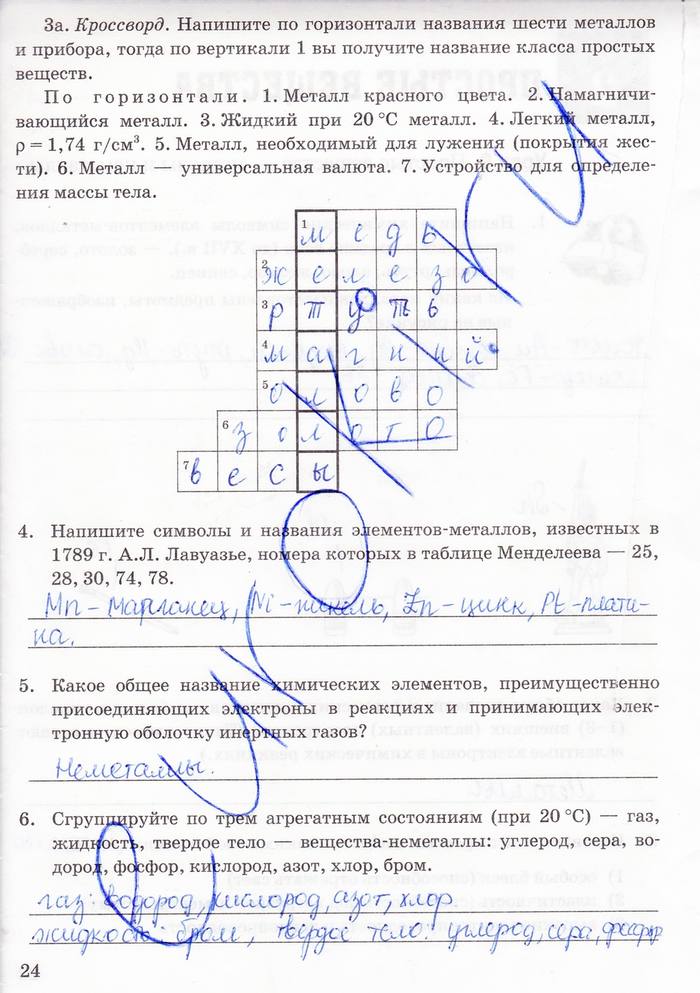 3а. Кроссворд. Напишите по горизонтали названия шести металлов
и прибора, тогда по вертикали 1 вы получите название класса простых
веществ.
По горизонтали. 1. Металл красного цвета. 2. Намагничи-
вающийся металл. 3. Жидкий при 20 °С металл. 4. Легкий металл,
ρ = 1,74 г/см³. 5. Металл, необходимый для лужения (покрытия жес-
ти). 6. Металл — универсальная валюта. 7. Устройство для определе-
ния массы тела.
1 м е д ь
2 ж е л е з о
3 р т у т ь
4 м а г н и й
5 о л о в о
6 з о л о т о
7 в е с ы
4. Напишите символы и названия элементов-металлов, известных в
1789 г. А.Л. Лавуазье, номера которых в таблице Менделеева — 25,
28, 30, 74, 78.
Mn - марганец, Ni - никель, Zn - цинк, Pt - плати-
на.
5. Какое общее название химических элементов, преимущественно
присоединяющих электроны в реакциях и принимающих элек-
тронную оболочку инертных газов?
Неметаллы.
6. Сгруппируйте по трем агрегатным состояниям (при 20 °С) — газ,
жидкость, твердое тело — вещества-неметаллы: углерод, сера, во-
дород, фосфор, кислород, азот, хлор, бром.
газ: водород, кислород, азот, хлор
жидкость: бром, твёрдое тело: углерод, сера, фосфор
24